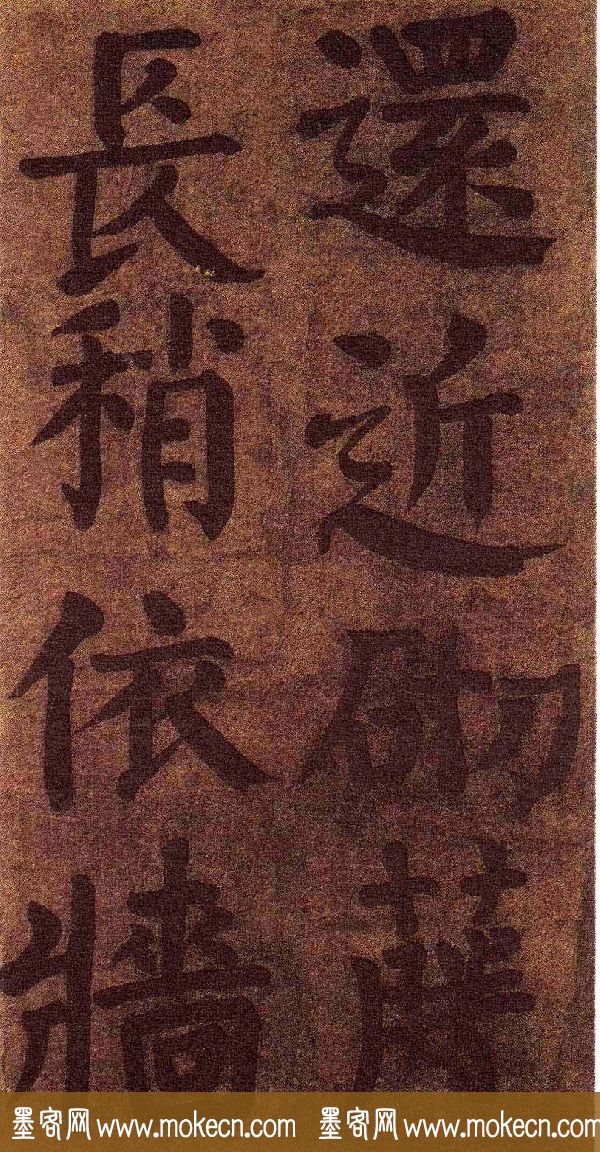 還近砌
長稍依牆
墨客网 www.mokecn.com 墨客网 www.mokecn.com